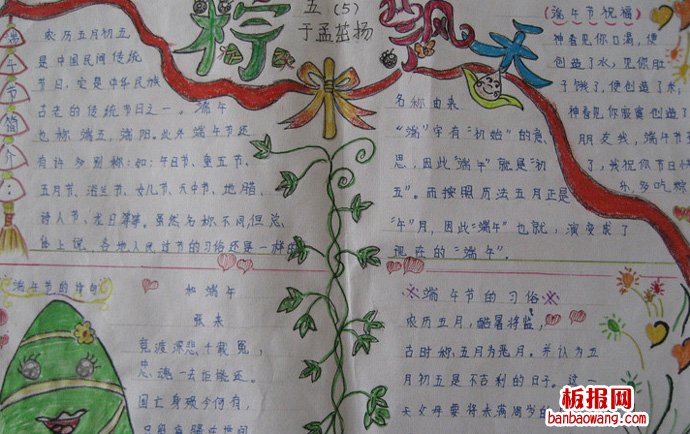 粽
五(5)
于孟茁扬
飘
天
端午节简介:
农历五月初五
是中国民间传统
节日,它是中华民族
古老的传统节日之一。端午
也称端五,端阳。此外端午节还
有许多别称:如:午日节、重五节、
五月节、浴兰节、女儿节、天中节、地腊、
诗人节、龙日等等。虽然名称不同,但总
体上说,各地人民过节的习俗还是一样
名称由来
“端”字有“初始”的意
思,因此“端午”就是“初
五”。而按照历法五月正是
“午”月,因此“端午”也就,演变成了
现在的“端午”。
(端午节祝福)
神看见你口渴,便
创造了水;见你肚
子饿了,便创造了米;
神看见你寂寞创造了
朋友我,端午节
了,我祝你节日
乐,多吃粽
端午节的诗句
和端午
张耒
竞渡深悲千载冤,
忠魂一去讵能还。
国亡身殒今何有,
只留离骚在世间
端午节的习俗
农历五月,酷暑将临,
古时称五月为恶月。并认为五
月初五是不吉利的日子。这一
天父母要将未满周岁的
板报网
banbaowang.com